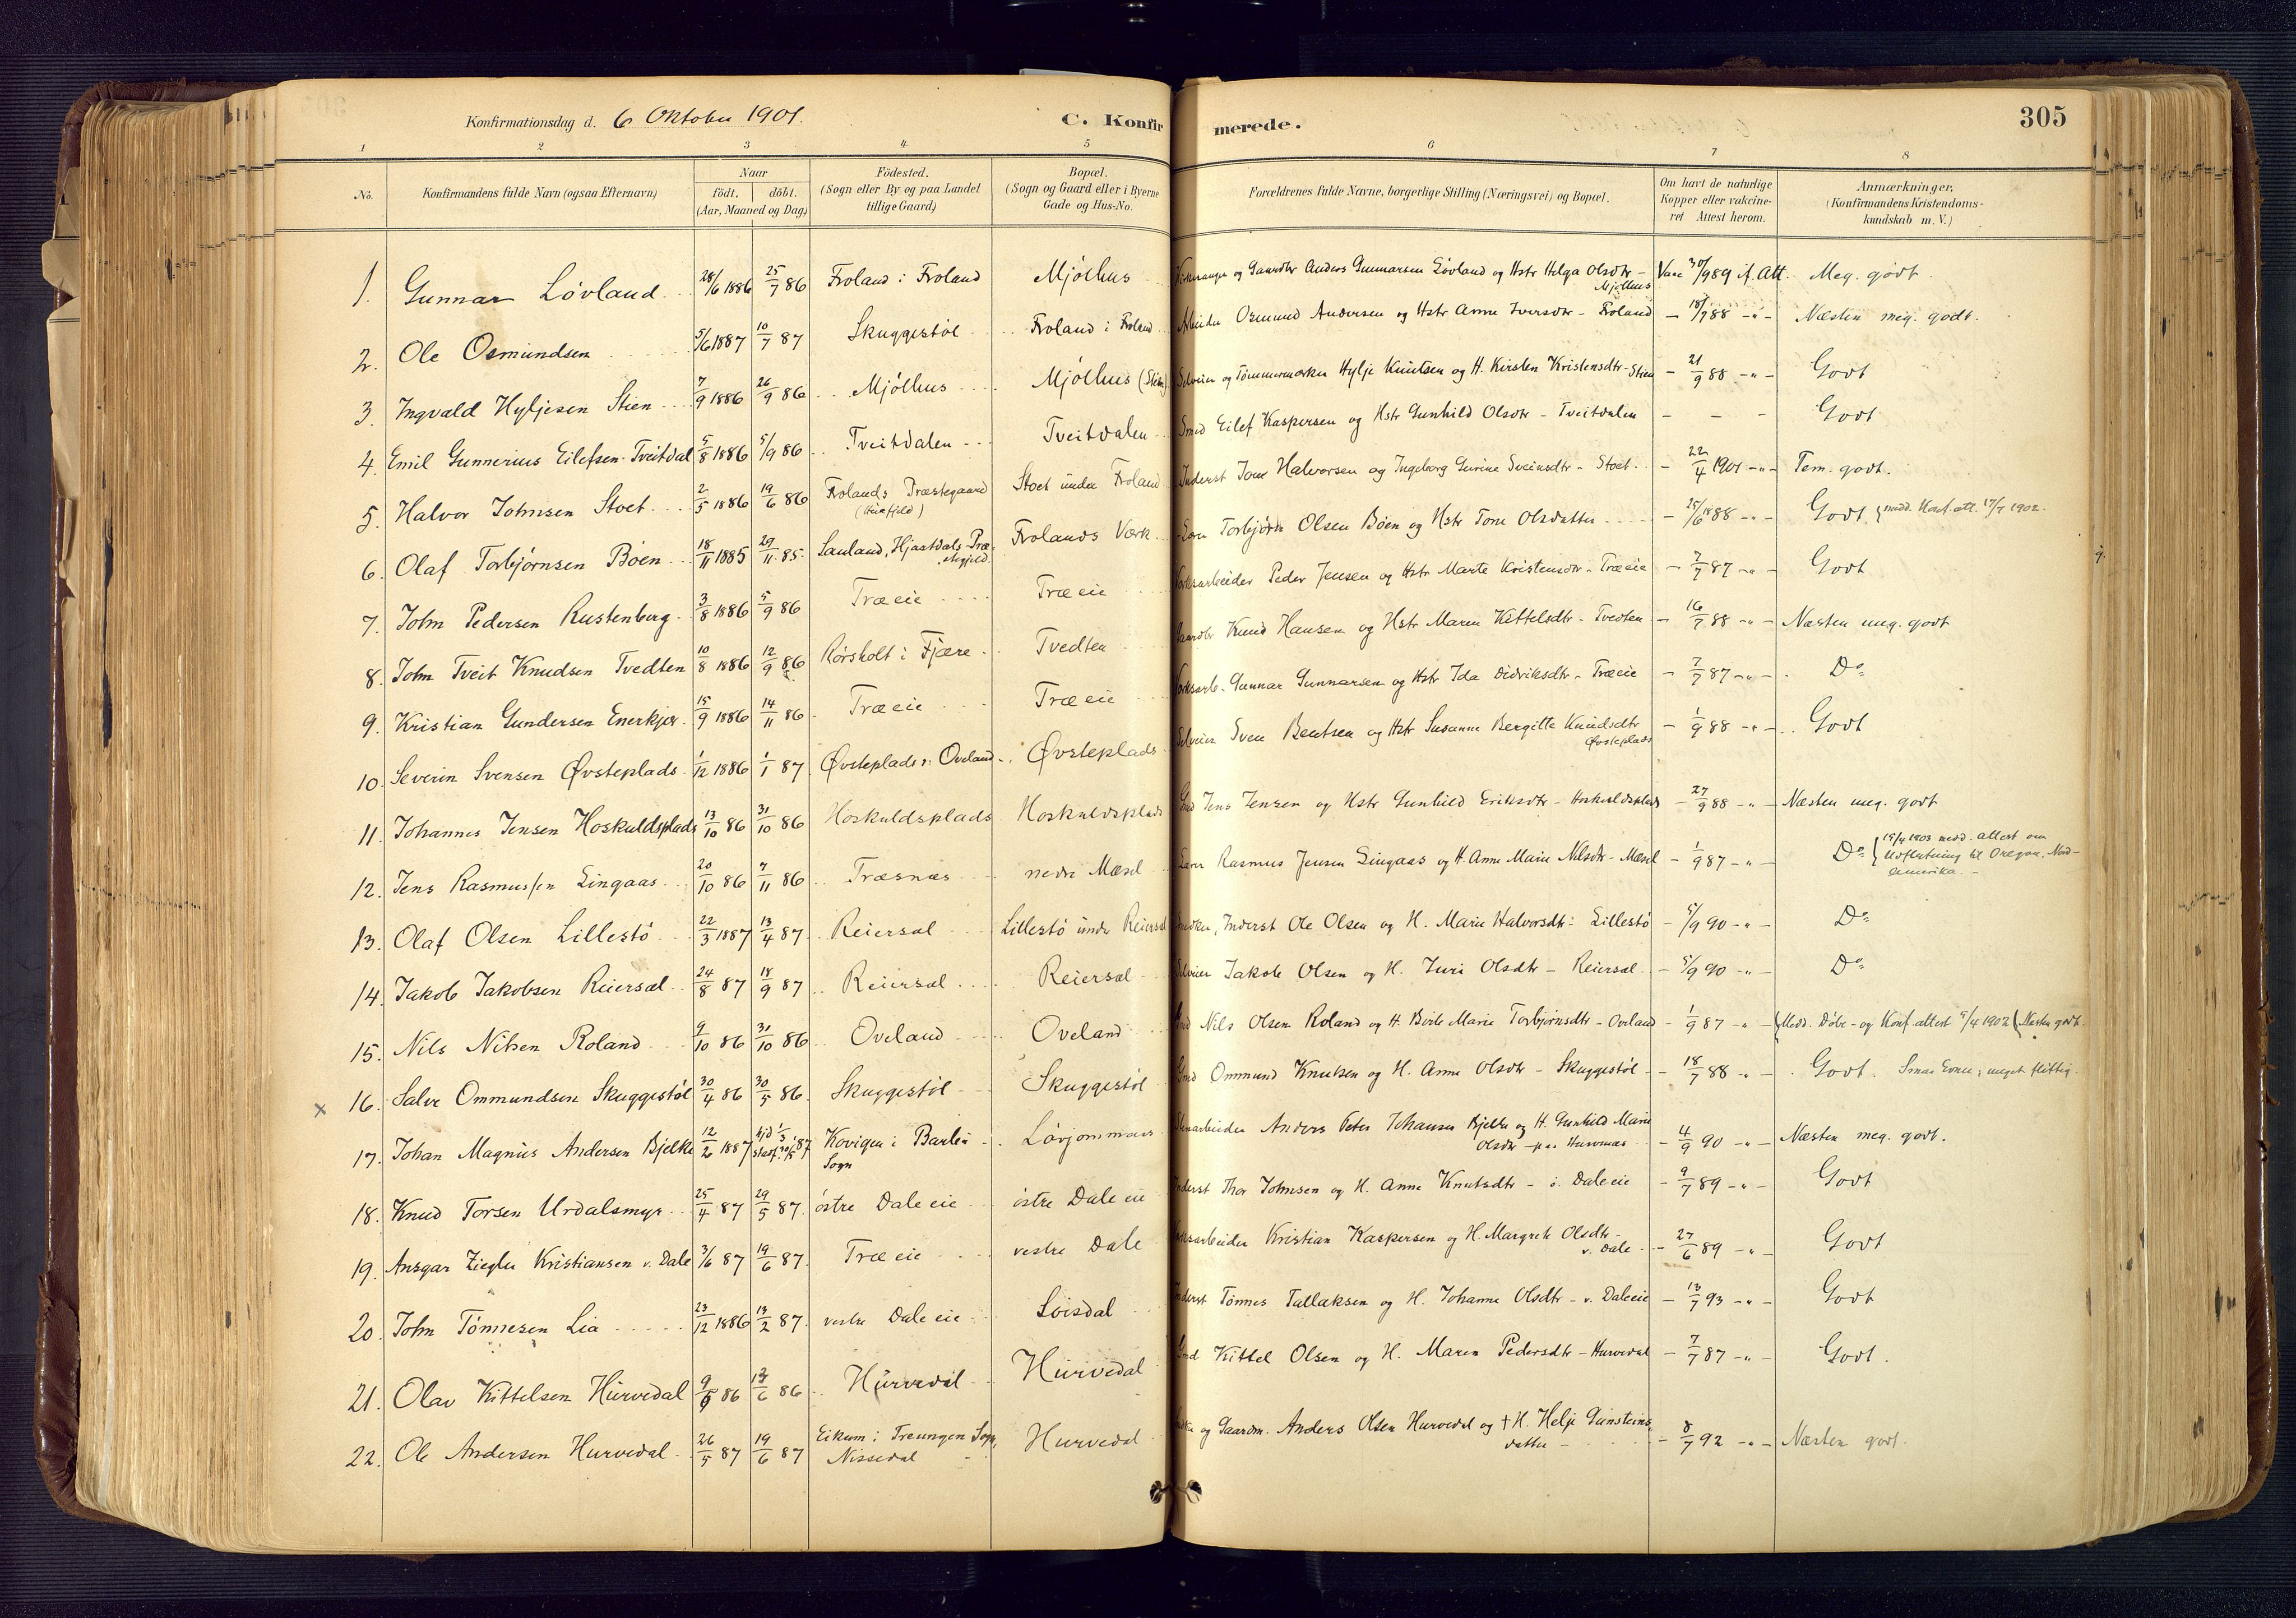 Konfirmationsdag d. 6 Oktober 1901.
C. Konfirmerede.
305
1 2 3 4 5 6 7 8
No.
Konfirmandens fulde Navn (ogsaa Efternavn)
Naar
födt. döbt.
(Aar, Maaned og Dag)
Födested.
(Sogn eller By og paa Landet
tillige Gaard)
Bopæl.
(Sogn og Gaard eller i Byerne
Gade og Hus-No.
Forældrenes fulde Navne, borgerlige Stilling (Næringsvei) og Bopæl.
Om havt de naturlige
Kopper eller vakcine-
ret Attest herom.
Anmærkninger,
(Konfirmandens Kristendoms-
kundskab m. V.)
1. Gunnar Lövland 28/6 1886 25/7 86 Froland i Froland Mjölhus Kirkesanger og Gaardbr Anders Gunnarsen Lövland og Hstr Helga Olsdtr - Mjölhus Vacc 30/9 89 if. Att. Meg. godt
2. Ole Osmundsen 5/6 1887 10/7 87 Skuggestöl Froland i Froland Arbeider Osmund Andersen og Hstr Anne Iversdtr - Froland - 18/7 88 -"- Næsten meg. godt.
3. Ingvald Hyljesen Stien 7/9 1886 26/9 86 Mjölhus Mjölhus (Stien) Selveier og Tömmermærker Hylje Knutsen og H. Kirsten Kristensdtr - Stien - 21/9 88 -"- Godt
4. Emil Gunnerius Eilefsen Tveitdal 5/8 1886 5/9 86 Tveitdalen Tveitdalen Smed Eilef Kaspersen og Hstr Gunhild Olsdtr - Tveitdalen - - - Godt
5. Halvor Johnsen Stoet 2/5 1886 19/6 86 Frolands Præstegaard Stoet under Froland Inderst John Halvorsen og Ingeborg Gurine Sveinsdtr - Stoet - 22/4 1901 -"- Tem. godt.
6. Olaf Torbjörnsen Böen 18/11 1885 29/11 85 Sauland, Hjartdals Præstegjeld Frolands Værk Torbjörn Olsen Böen og Hstr Tone Olsdatter - 25/6 88 -"- Godt. {medd. Konf. att. 17/7 1902.
7. John Pedersen Rustenberg 3/8 1886 5/9 86 Træ eie Træ eie Værksarbeider Peder Jensen og Hstr Marte Kristensdtr - Træeie - 7/7 87 -"- Godt
8. John Tveit Knudsen Tvedten 10/8 1886 12/9 86 Rörsholt i Fjære Tvedten Gaardbr Knud Hansen og Hstr Maren Kittelsdtr - Tvedten - 16/7 88 -"- Næsten meg. godt
9. Kristian Gundersen Enerkjær 15/9 1886 14/11 86 Træ eie Træ eie Værksarb. Gunnar Gunnarsen og Hstr Ida Didriksdtr - Træeie - 7/7 87 -"- Do
10. Severin Svensen Øvsteplads 1/12 1886 1/1 87 Øvsteplads v. Oveland Øvsteplads Selveier Sven Bentsen og Hstr Susanne Bergitte Knudsdtr Øvsteplads - 1/9 88 -"- Godt
11. Johannes Jensen Hoskuldsplads 13/10 86 31/10 86 Hoskuldsplads Hoskuldsplads Gmd Jens Jensen og Hstr Gunhild Eriksdtr - Hoskuldsplads - 27/9 88 -"- Næsten meg. godt
12. Jens Rasmussen Lingaas 20/10 86 7/11 86 Træsnæs nedre Mæsel Rasmus Jensen Lingaas og H. Anne Marie Nilsdtr - Mæsel - 1/9 87 -"- Do {15/4 1903 medd. attest om Udflytning til Oregon, Nord-Amerika.
13. Olaf Olsen Lillestö 22/3 1887 13/4 87 Reiersöl Lillestö under Reiersöl Snedker, Inderst Ole Olsen og H. Marie Halvorsdtr - Lillestö - 5/9 90 -"- Do
14. Jakob Jakobsen Reiersöl 24/8 87 18/9 87 Reiersöl Reiersöl Selveier Jakob Olsen og H. Juri Olsdtr - Reiersöl - 5/9 90 -"- Do
15. Nils Nilsen Roland 9/10 86 31/10 86 Oveland Oveland Gmd Nils Olsen Roland og H. Berte Marie Torbjörnsdtr - Oveland - 1/9 87 -"- {Medd. Döbe- og Konf. attest 5/4 1902 {Næsten godt.
x 16. Salve Ommundsen Skuggestöl 30/4 86 30/5 86 Skuggestöl Skuggestöl Gmd Ommund Knutsen og H. Anne Olsdtr - Skuggestöl - 18/7 88 -"- Godt. Smaa Evner, meget flittig.
17. Johan Magnus Andersen Bjelke 12/2 1887 Kovigen i Barbu Sogn Lövjommaas Stenarbeider Anders Peter Johansen Bjelke og H. Gunhild Marie Olsdtr - 4/9 90 -"- Næsten meg. godt.
18. Knud Torsen Urdalsmyr 25/4 87 29/5 87 östre Dale eie östre Dale eie Inderst Thor Johnsen og H. Anne Knutsdtr - ö. Dale eie - 9/7 89 -"- Godt
19. Ansgar Ziegler Kristiansen v. Dale 3/6 87 19/6 87 Træ eie vestre Dale Værksarbeider Kristian Kaspersen og H. Margrete Olsdtr - v. Dale - 27/6 89 -"- Godt
20. John Tönnesen Lia 23/12 1886 13/2 87 vestre Dale eie Löisdal Inderst Tönnes Tallaksen og H. Johanne Olsdtr - v. Dale eie - 13/7 93 -"- Godt
21. Olav Kittelsen Hurvedal 9/5 86 13/6 86 Hurvedal Hurvedal Gmd Kittel Olsen og H. Maren Pedersdtr - Hurvedal - 7/7 87 -"- Godt.
22. Ole Andersen Hurvedal 26/5 87 19/6 87 Eikum i Treungen Sogn, Nissedal Hurvedal og Gaardm. Anders Olsen Hurvedal og † H. Helje Gunsteinsdatter - 8/7 92 -"- Næsten godt.